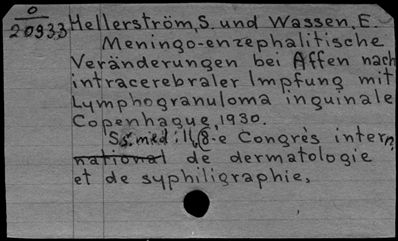 0
20933
Hellerström, S. und Wassen, E.
Meningo-enzephalitische
Veränderungen bei Affen nach
intracerebraler Impfung mit
Lymphogranuloma inguinale
Copenhague, 1930.
8-e Congrès intern.
national de dermatologie
et de syphiligraphie,